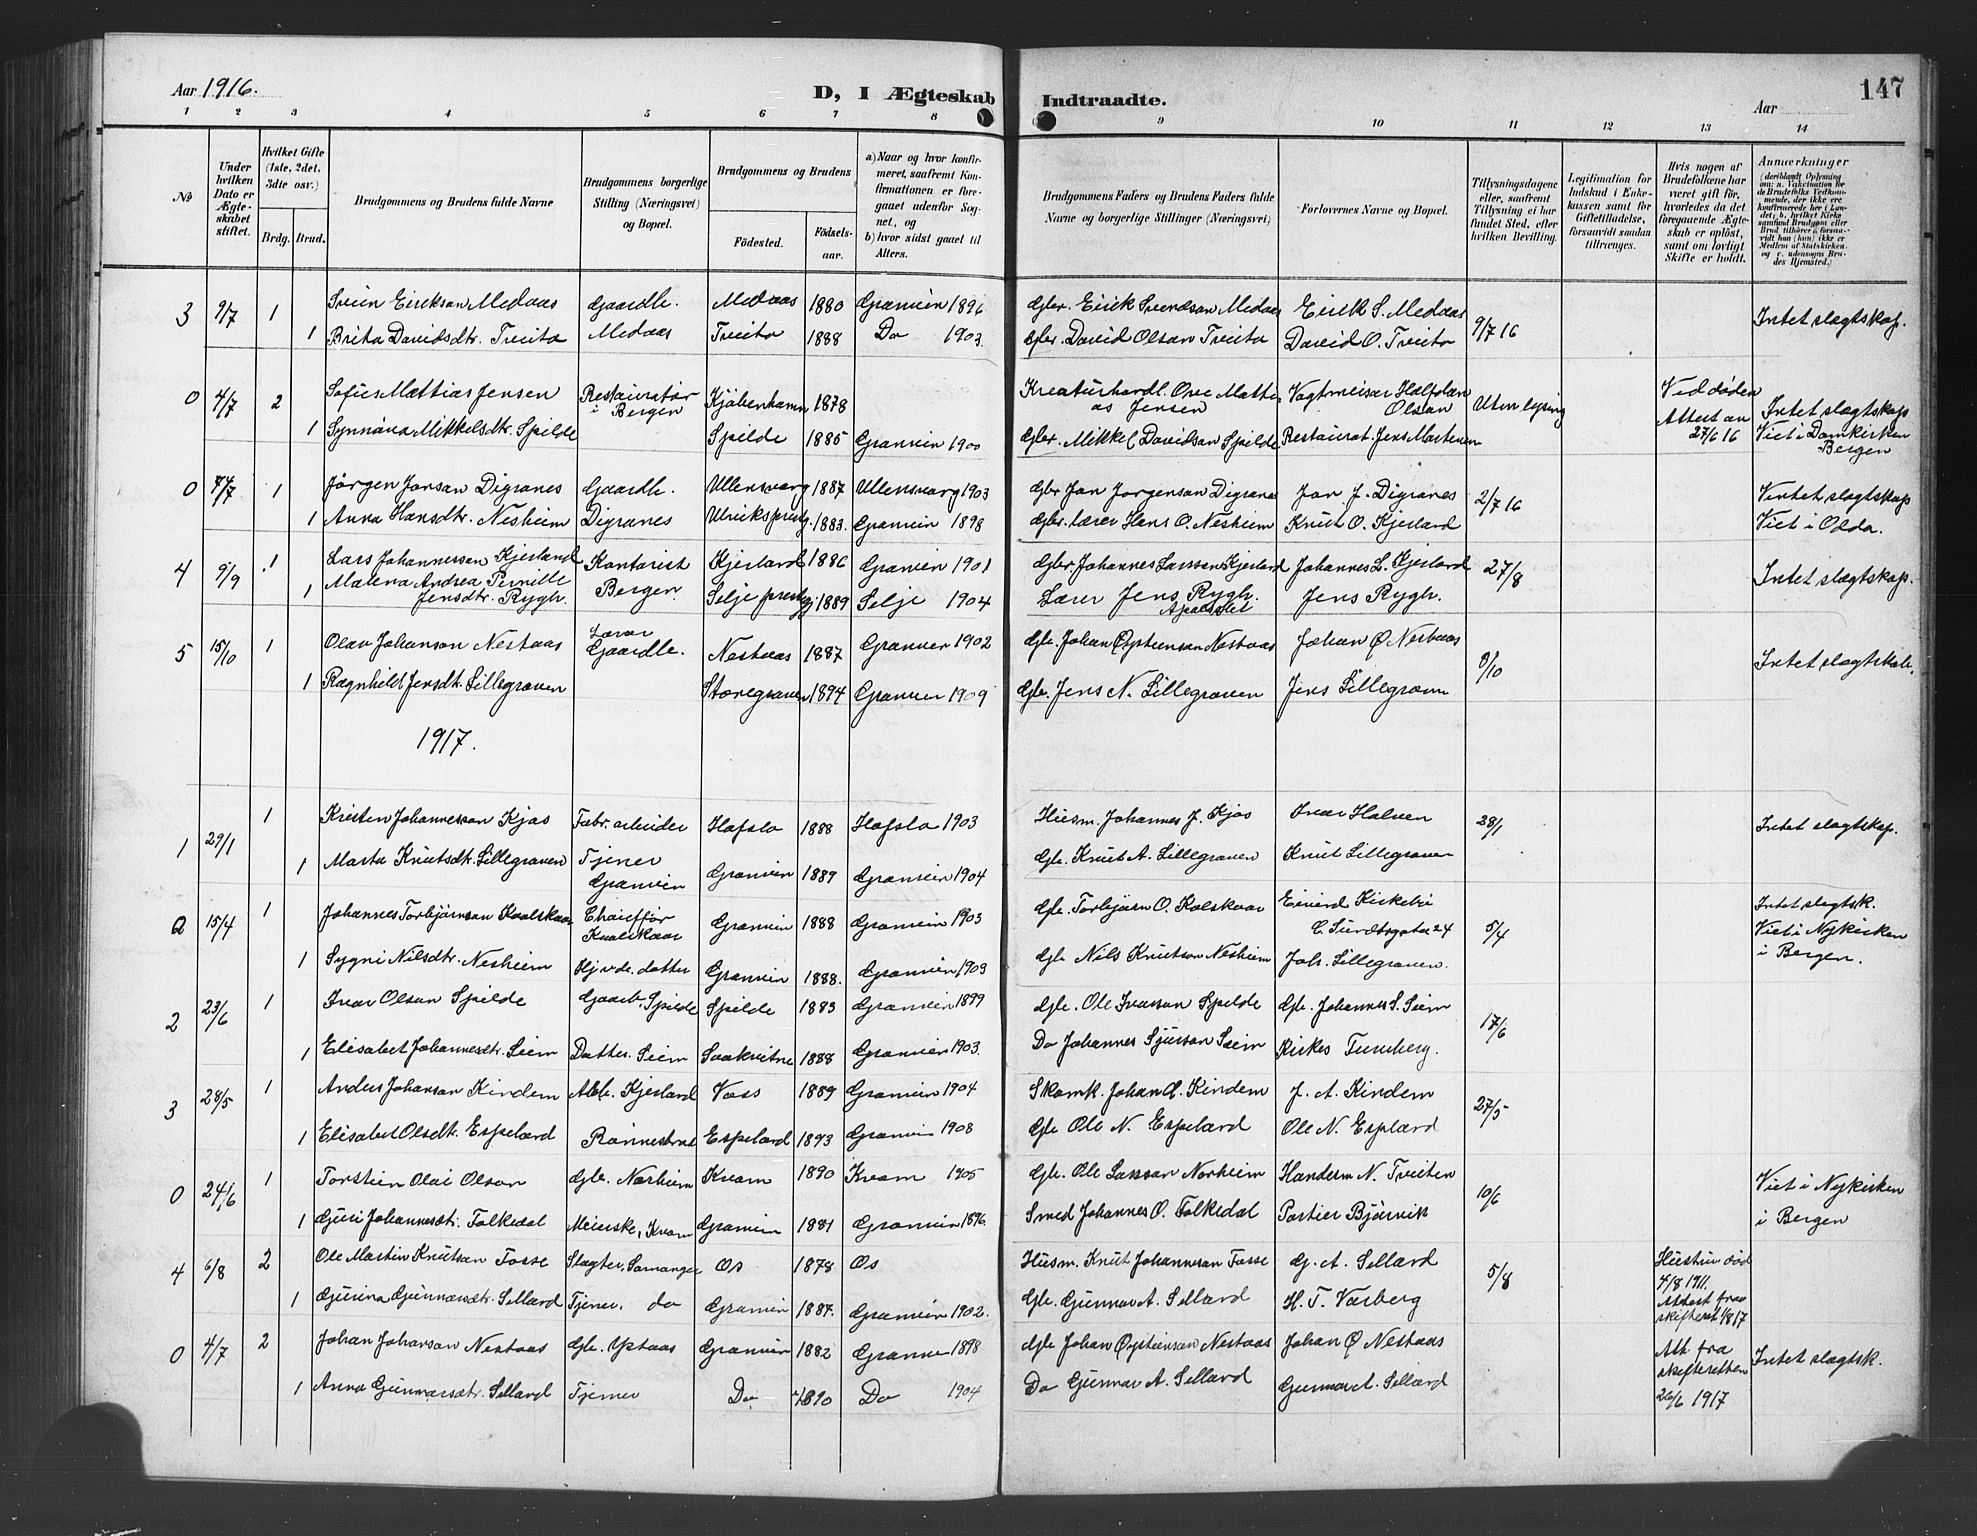 Aar 1916.
D, I Ægteskab Indtraadte.
Aar
147
1 2 3 4 5 6 7 8 9 10 11 12 13 14
No
Under hvilken Dato er Ægteskabet stiftet.
Hvilket Gifte (1ste, 2det, 3die osv.)
Brdg. Brud.
Brudgommens og Brudens fulde Navne
Brudgommens borgerlige Stilling (Næringsvei) og Bopæl.
Brudgommens og Brudens
Fødested.
Fødselsaar.
a) Naar og hvor konfirmeret, saafremt Konfirmationen er foregaaet udenfor Sognet, og
b) hvor sidst gaaet til Alters.
Brudgommens Faders og Brudens Faders fulde Navne og borgerlige Stillinger (Næringsvei)
Forlovernes Navne og Bopæl.
Tillysningsdagene eller, saafremt Tillysning ei har fundet Sted, efter hvilken Bevilling.
Legitimation for Indskud i Enkekassen samt for Giftetilladelse, forsaavidt saadan tiltrænges.
Hvis nogen af Brudefolkene har været gift før, hvorledes da det foregaaende Ægteskab er opløst, samt om lovligt Skifte er holdt.
Anmærkninger (deriblandt Oplysning om: a. Vaksination for de Brudefolks Vedkommende, der ikke ere konfirmerede her i Landet; b. hvilket Kirkesamfund Brudgom eller Brud tilhører, forsaavidt han (hun) ikke er Medlem af Statskirken, og c. udensogns Brudes Hjemsted.)
3 9/7 1 Svein Eirikson Medaas Gaardbr. Medaas 1880 Granvin 1896 Gbr. Eirik Sveinson Medaas Eirik S. Medaas 9/7 16 Intet slægtskap.
1 Brita Davidsdtr. Tveito Medaas Tveito 1888 Do 1903. Gbr. David Olson Tveito David O. Tveito
0 4/7 2 Sofus Mattias Jensen Restauratør i Bergen Kjöbenhamn 1878 Kreaturhandl. Ove Mattias Jensen Vagtmeister Halfdan Olson Uten lysing Ved döden Attest an 27/6 16 Intet slægtskap
1 Synnöva Mikkelsdtr. Spilde Spilde 1885 Granvin 1900 Gbr. Mikkel Davidson Spilde Restaurat. Jens Mortensen Viet i Domkirken Bergen
0 7/7 1 Jörgen Jonson Digranes Gaardbr. Ullensvang 1887 Ullensvang 1903 Gbr Jon Jörgenson Digranes Jon J. Digranes 2/7 16 Intet slægtskap
1 Anna Hansdtr. Nesheim Digranes 1883. Granvin 1898 Gbr. Lærer Hans O. Nesheim Knut O. Kjerland Viet i Odda.
4 9/9 1 Lars Johannesson Kjerland Kontorist Kjerland 1886 Granvin 1901 Gbr Johannes Larsson Kjerland Johannes L. Kjerland 27/8 Intet slægtskap.
1 Malena Andrea Pernille Jensdtr. Rygh. Bergen. Selje prestegj 1889 Selje 1904 Lærer Jens Rygh. Jens Rygh.
5 15/10 1 Olav Johanson Nestaas Lærer Gaardbr. Nestaas 1887 Granvin 1902 Gbr. Johan Øysteinson Nestaas Johan Ø Nestaas 8/10 Intet slægtskab.
1 Ragnhild Jensdtr. Lillegraven Storegraven 1894 Granvin 1909 Gbr. Jens N. Lillegraven Jens Lillegraven
1917.
1 29/1 1 Kristen Johannesson Kjos Fabr. arbeider Hafslo 1888 Hafslo 1903 Husm. Johannes J. Kjos Ivar Halven 28/1 Intet slægtskap.
1 Marta Knutsdtr. Lillegraven Tjener Granvin Granvin 1889 Granvin 1904 Gbr. Knut A. Lillegraven Knut Lillegraven
0 15/4 1 Johannes Torbjörnson Kvalskaar Chauffør Kvalskaar Granvin 1888 Granvin 1903 Gbr. Torbjörn O. Kolskaar Eivind Kirkebö C. Sundtsgate 24 5/4 Intet slægtsk.
1 Sygni Nilsdtr. Nesheim Hjv. de. datter Granvin 1888. Granvin 1903 Gbr Nils Knutson Nesheim Joh. Lillegraven. Viet i Nykirken i Bergen.
2 23/6 1 Ivar Olson Spilde Gaarb. Spilde Spilde 1883 Granvin 1899 Gbr. Ole Ivarson Spilde Gbr. Johannes S. Seim 17/6
1 Elisabet Johannesdtr. Seim Datter. Seim 1888 Granvin 1903. Do Johannes Sjurson Seim Kirkes. Tuneberg.
3 28/5 1 Anders Johanson Kindem Kjerland Voss 1889 Granvin 1904 Skomk. Johan A. Kindem J. A. Kindem 27/5
1 Elisabet Olsdtr. Espeland Espeland 1893 Granvin 1908 Gbr Ole N. Espeland Ole N. Espeland
0 24/6 1 Torstein Olai Olson Gbr. Norheim Kvam 1890 Kvam 1905 Gbr. Ole Larsson Norheim Handelsm N. Tveiten 10/6 Viet i Nykirken
1 Guri Johannesdtr. Folkedal Meierske, Kvam Granvin 1881 Granvin 1896 Smed Johannes O. Folkedal Portier Björvik i Bergen
4 6/8 2 Ole Martin Knutson Fosse Slagter, Samanger Os 1878 Os Husm. Knut Johanneson Fosse G. A. Selland 5/8 Hustru död 4/8 1911. Attest fra skifteret 1/8 17
1 Gurina Gunnarsdtr. Selland Tjener. do Granvin 1887. Granvin 1902. Gbr. Gunnar A. Selland H. T. Varberg
0 4/7 2 Johan Johanson Nestaas Gbr. Ystaas Granvin 1882 Granvin 1898 Gbr Johan Øysteinson Nestaas Johan Ø Nestaas Att. fra skifteretten 26/6 1917 Intet slægtsk.
1 Anna Gunnarsdtr. Selland Tjener Do 1890 Do 1904 Do Gunnar A. Selland Gunnar A. Selland